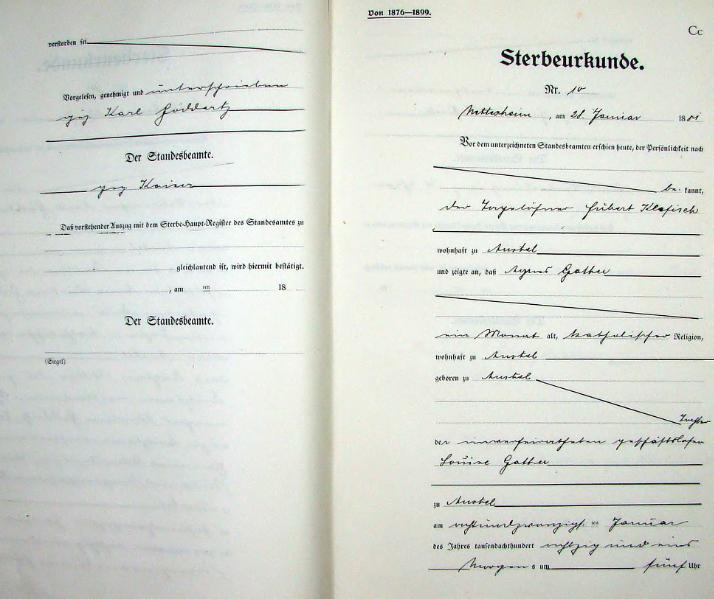 verstorben ist
Vorgelesen, genehmigt und unterschrieben
gez Karl
Der Standesbeamte.
gez Kaiser
Daß vorstehender Auszug mit dem Sterbe-Haupt-Register des Standesamtes zu
gleichlautend ist, wird hiermit bestätigt.
, am ten 18
Der Standesbeamte.
(Siegel)
Von 1876—1899.
Cc
Sterbeurkunde.
Nr. 10
, am 28. Januar 1881
Vor dem unterzeichneten Standesbeamten erschien heute, der Persönlichkeit nach
be- kannt,
der Tagelöhner Hubert Klefisch
wohnhaft zu
und zeigte an, daß Agnes
ein Monat alt, katholischer Religion,
wohnhaft zu
geboren zu
Tochter
der unverheiratheten geschäftslosen
Louise
zu
am achtundzwanzigsten Januar
des Jahres tausendachthundert achtzig und eins
Morgens um fünf Uhr